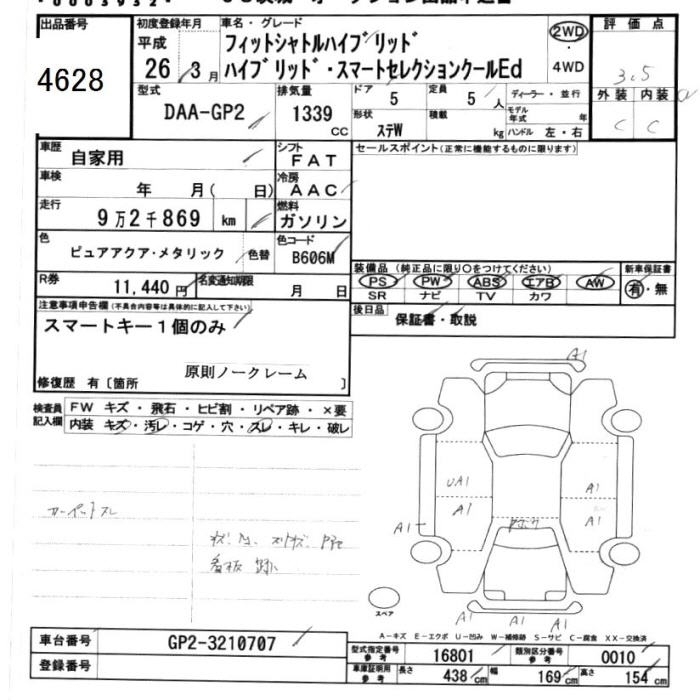 出品番号 初度登録年月 車名・グレード 2WD 評価点
4628 平成 26年 3月 フィットシャトルハイブリッド 4WD 3.5
ハイブリッド・スマートセレクションクールEd
型式 排気量 ドア 5 定員 5人 ディーラー・並行 外装 内装
DAA-GP2 1339 cc 形状 ステW 積載 kg モデル年式 年 ハンドル 左・右 C C
車歴 自家用 シフト FAT セールスポイント(正常に機能するものに限ります)
車検 年 月( 日) 冷房 AAC
走行 9万2千869 km 燃料 ガソリン
色 ピュアアクア・メタリック 色替 色コード B606M
装備品(純正品に限り○をつけてください) 新車保証書
R券 11,440円 名変通知期限 月 日 PS PW ABS エアB AW 有・無
SR ナビ TV カワ
注意事項申告欄(不具合内容等は具体的に記入して下さい) 後日品 保証書・取説
スマートキー1個のみ
原則ノークレーム
修復歴 有〔箇所 〕
検査員記入欄 FW キズ・飛石・ヒビ割・リペア跡・×要
内装 キズ・汚レ・コゲ・穴・スレ・キレ・破レ
A1
UA1 A1
A1 A1
A1
カーペットスレ
A1 A1 A1
スペア
A-キズ E-エクボ U-凹み W-補修跡 S-サビ C-腐食 XX-交換済
車台番号 GP2-3210707 型式指定番号 参考 16801 類別区分番号 参考 0010
登録番号 車庫証明用 参考 長さ 438cm 幅 169cm 高さ 154cm